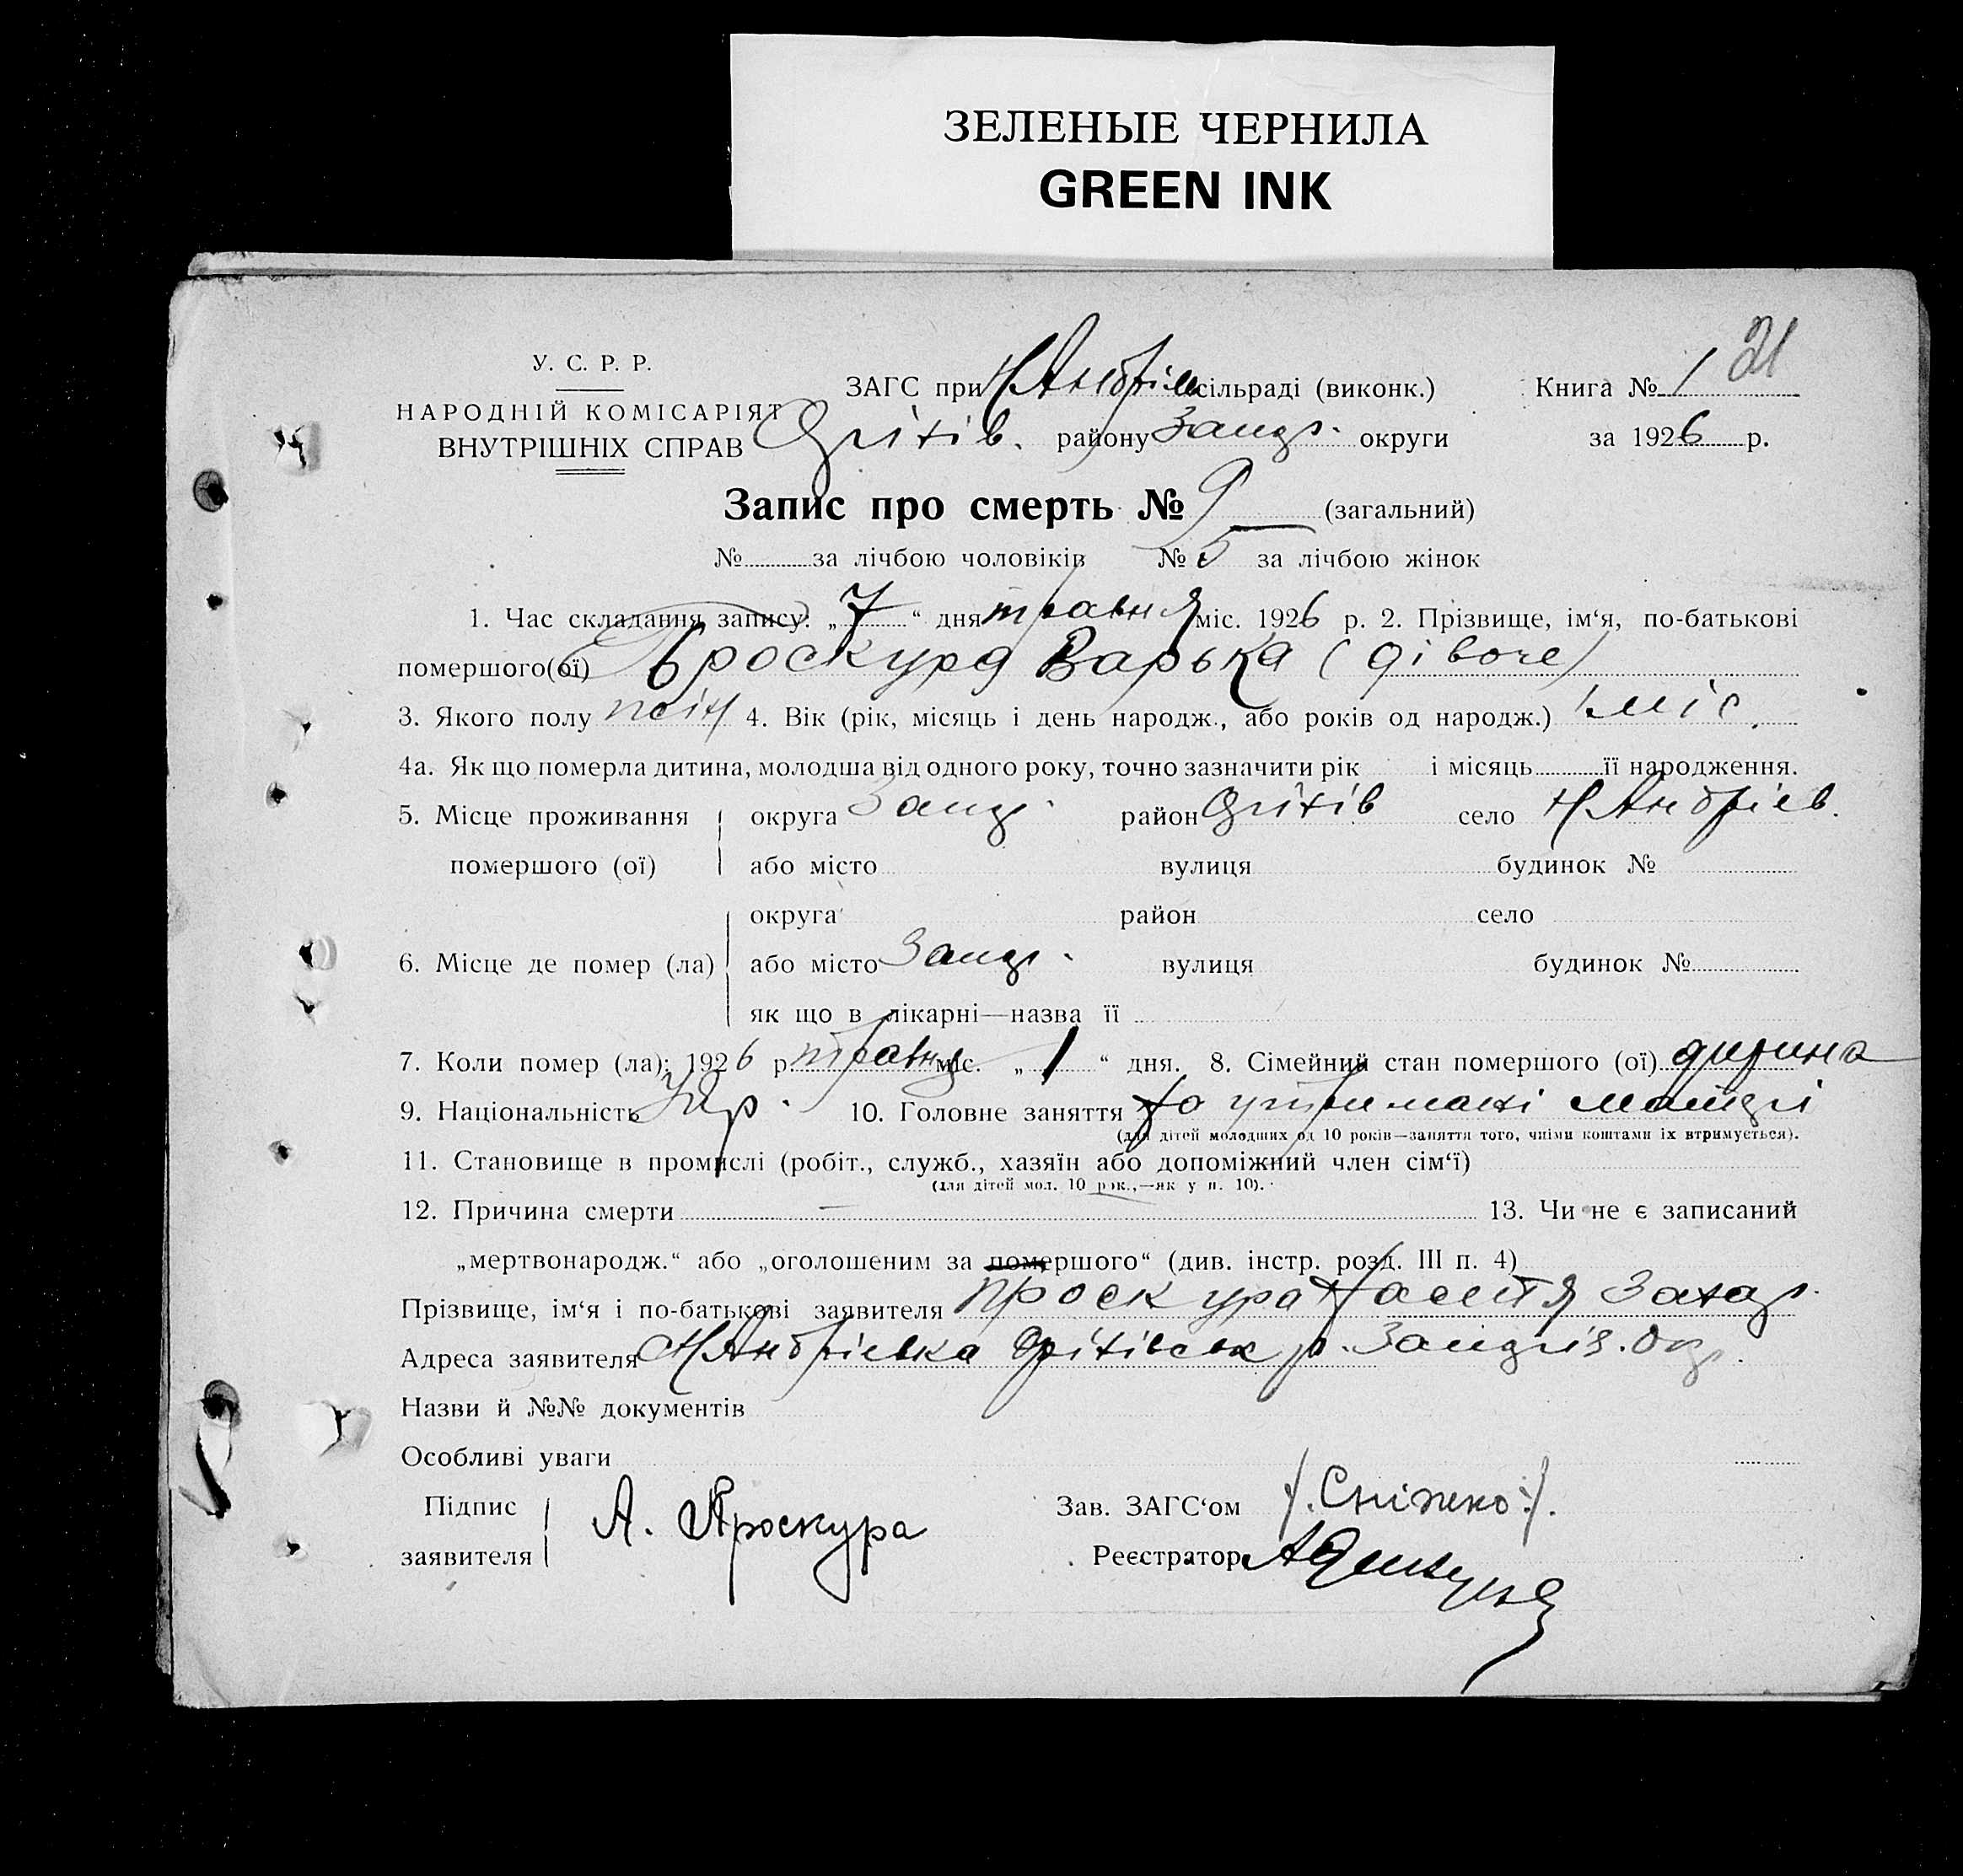 ЗЕЛЕНЫЕ ЧЕРНИЛА
GREEN INK
21
У. С. Р. Р.
НАРОДНІЙ КОМІСАРІЯТ
ВНУТРІШНІХ СПРАВ
ЗАГС при Н Андріїв сільраді (виконк.) Книга № 1
Оріхів. району Запор. округи за 1926 р.
Запис про смерть № 9 (загальний)
№ за лічбою чоловіків № 5 за лічбою жінок
1. Час складання запису: „7“ дня травня міс. 1926 р. 2. Прізвище, ім‘я, по-батькові
помершого(ої) Проскура Варька (дівоче)
3. Якого полу 4. Вік (рік, місяць і день народж., або років од народж.) 1 міс.
4а. Як що померла дитина, молодша від одного року, точно зазначити рік і місяць її народження.
5. Місце проживання помершого (ої) округа Запор. район Оріхів село Н Андріев.
або місто вулиця будинок №
округа район село
6. Місце де помер (ла) або місто Запор. вулиця будинок №
як що в лікарні—назва її
7. Коли помер (ла): 1926 р. травня міс. „1“ дня. 8. Сімейний стан помершого (ої) дитина
9. Національність Укр. 10. Головне заняття На утриманні матері
(для дітей молодших од 10 років—заняття того, чиїми коштами їх втримується).
11. Становище в промислі (робіт., служб., хазяїн або допоміжний член сім‘ї)
(для дітей мол. 10 рок.,—як у п. 10).
12. Причина смерти — 13. Чи не є записаний
„мертвонародж.“ або „оголошеним за помершого“ (див. інстр. розд. III п. 4)
Прізвище, ім‘я і по-батькові заявителя Проскура Настя Захар.
Адреса заявителя Н Андріевка Оріхівськ р. Запоріз. Окр.
Назви й №№ документів
Особливі уваги
Підпис заявителя А. Проскура Зав. ЗАГС‘ом
Реєстратор